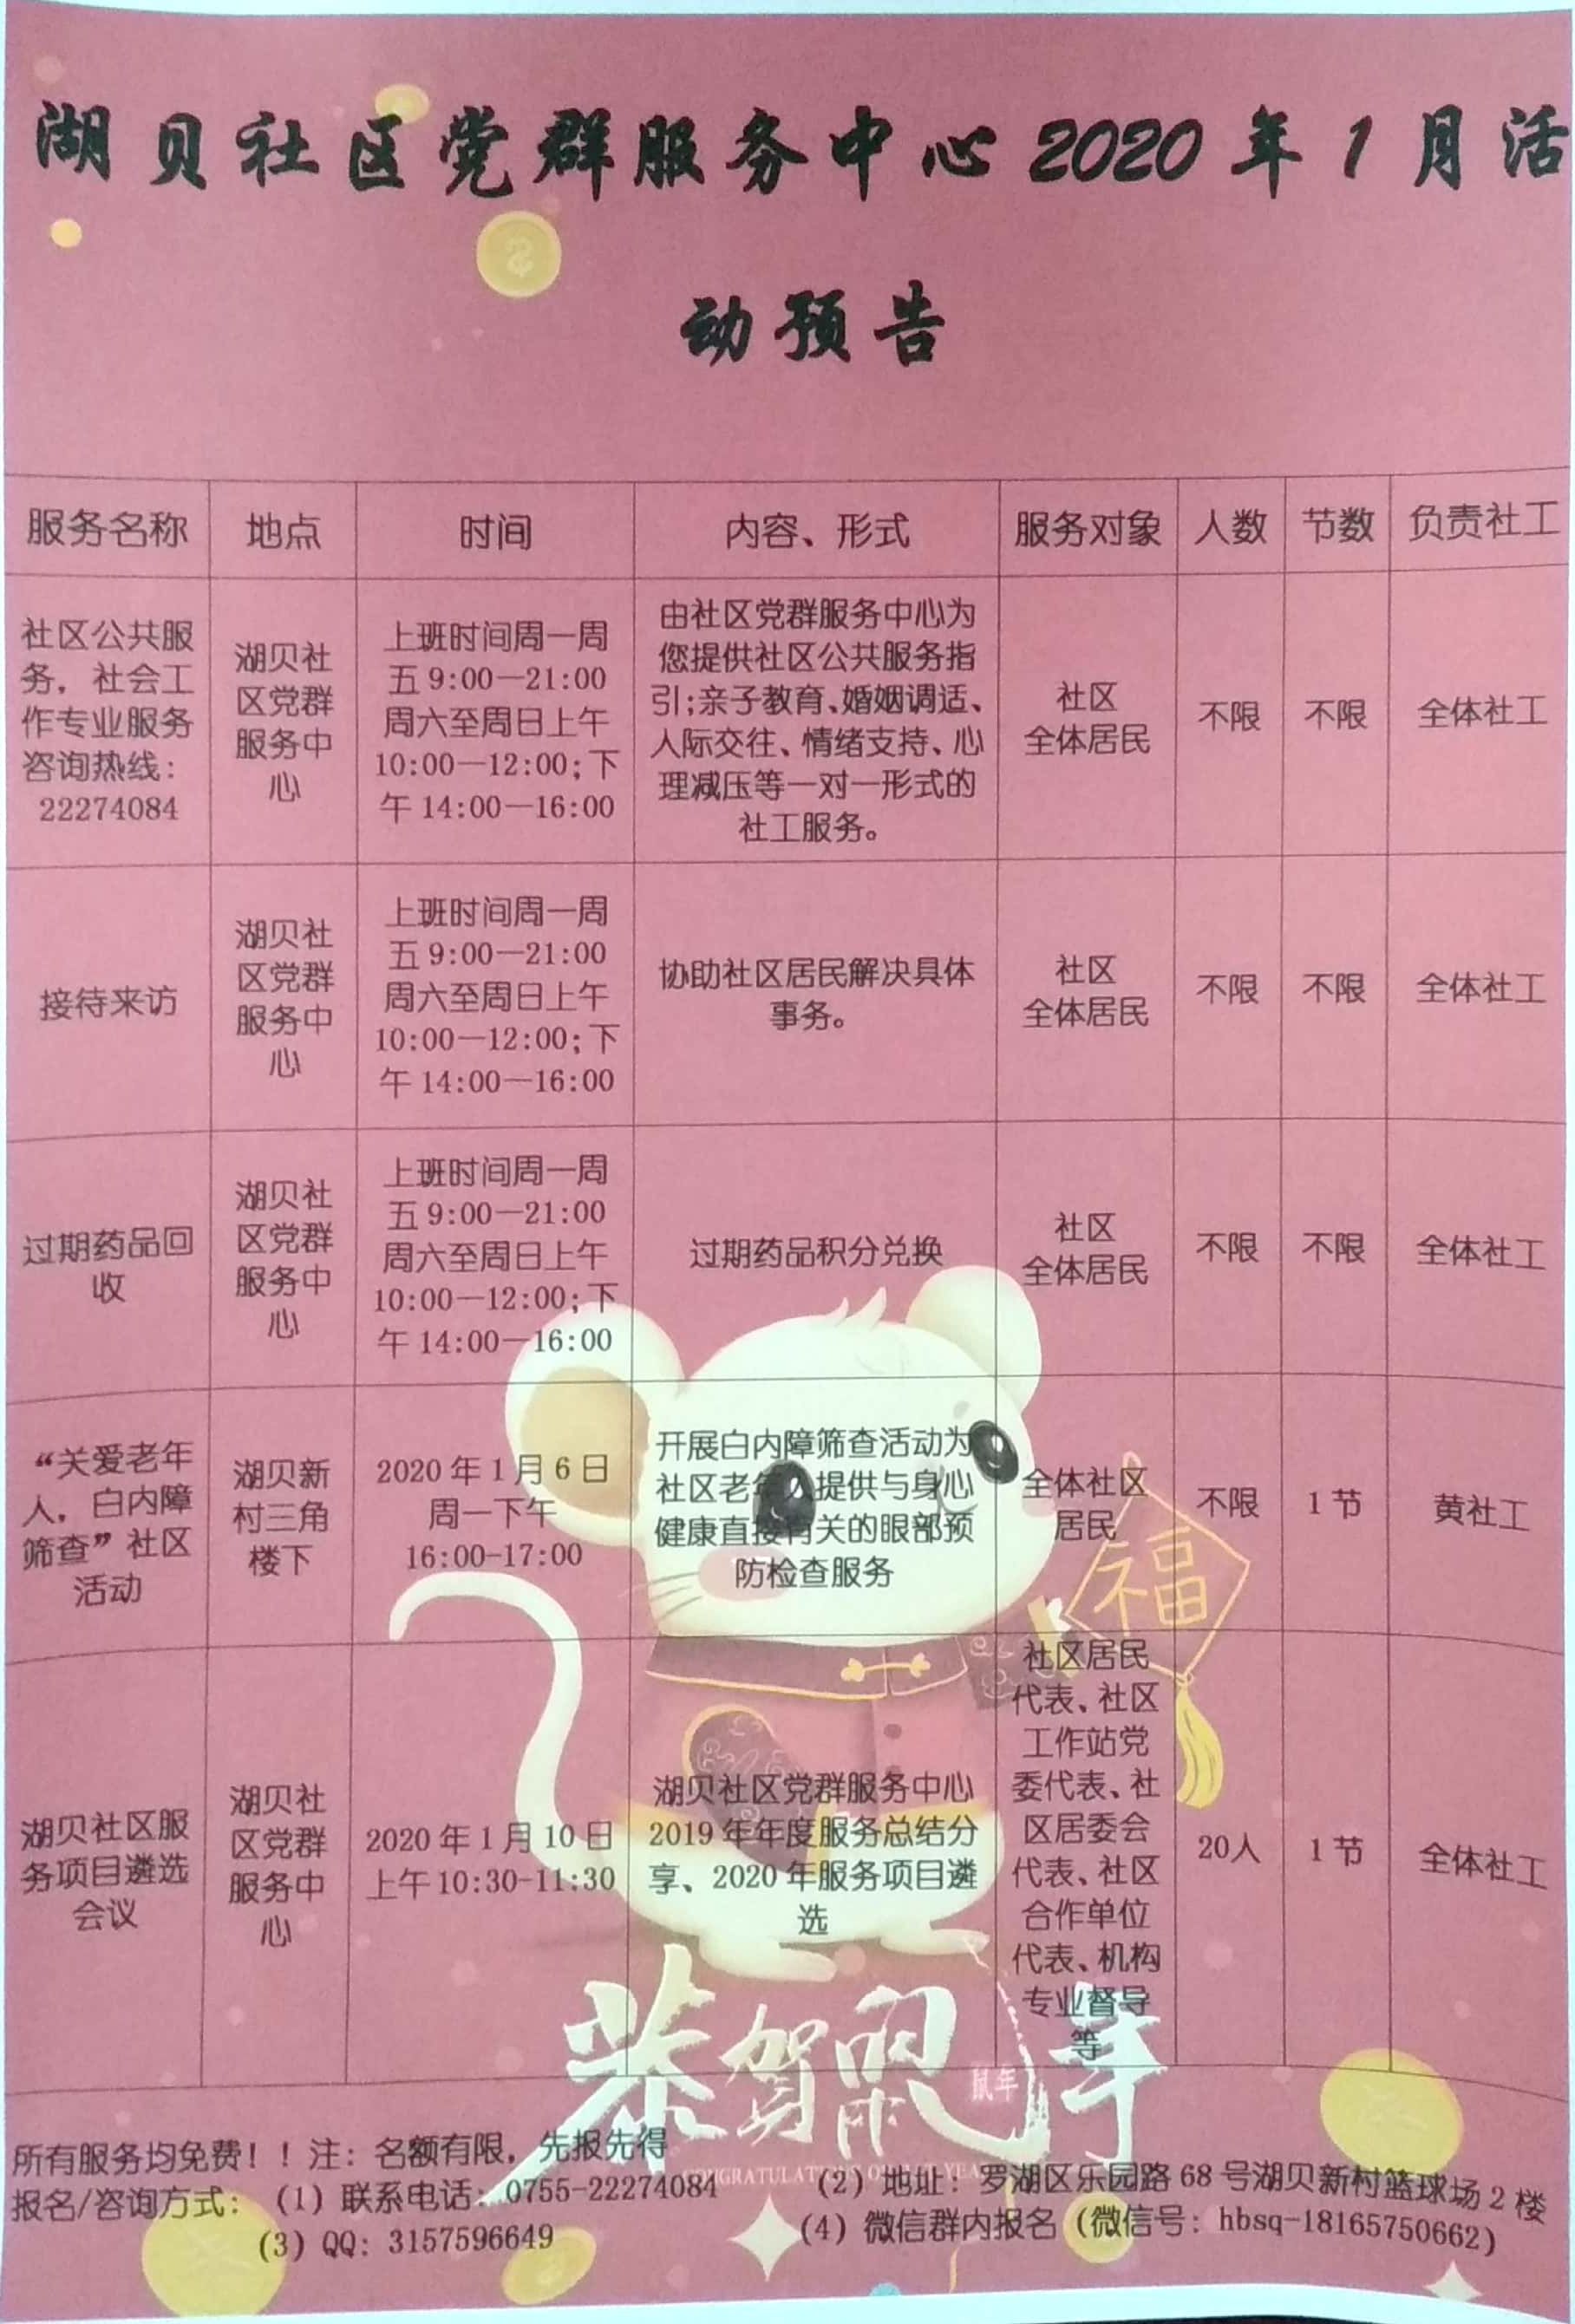 湖贝社区党群服务中心2020年1月活
动预告
服务名称 地点 时间 内容、形式 服务对象 人数 节数 负责社工
社区公共服
务，社会工
作专业服务
咨询热线：
22274084
湖贝社
区党群
服务中
心
上班时间周一周
五9:00—21:00
周六至周日上午
10:00—12:00;下
午14:00—16:00
由社区党群服务中心为
您提供社区公共服务指
引;亲子教育、婚姻调适、
人际交往、情绪支持、心
理减压等一对一形式的
社工服务。
社区
全体居民
不限
不限
全体社工
接待来访
湖贝社
区党群
服务中
心
上班时间周一周
五9:00—21:00
周六至周日上午
10:00—12:00;下
午14:00—16:00
协助社区居民解决具体
事务。
社区
全体居民
不限
不限
全体社工
过期药品回
收
湖贝社
区党群
服务中
心
上班时间周一周
五9:00—21:00
周六至周日上午
10:00—12:00;下
午14:00—16:00
过期药品积分兑换
社区
全体居民
不限
不限
全体社工
“关爱老年
人，白内障
筛查”社区
活动
湖贝新
村三角
楼下
2020年1月6日
周一下午
16:00-17:00
开展白内障筛查活动为
社区老年人提供与身心
健康直接有关的眼部预
防检查服务
全体社区
居民
不限
1节
黄社工
福
湖贝社区服
务项目遴选
会议
湖贝社
区党群
服务中
心
2020年1月10日
上午10:30-11:30
湖贝社区党群服务中心
2019年年度服务总结分
享、2020年服务项目遴
选
社区居民
代表、社区
工作站党
委代表、社
区居委会
代表、社区
合作单位
代表、机构
专业督导
等
20人
1节
全体社工
恭贺鼠年
鼠年
所有服务均免费！！注：名额有限，先报先得
报名/咨询方式：（1）联系电话：0755-22274084 （2）地址：罗湖区乐园路68号湖贝新村篮球场2楼
（3）QQ：3157596649 （4）微信群内报名（微信号：hbsq-18165750662）